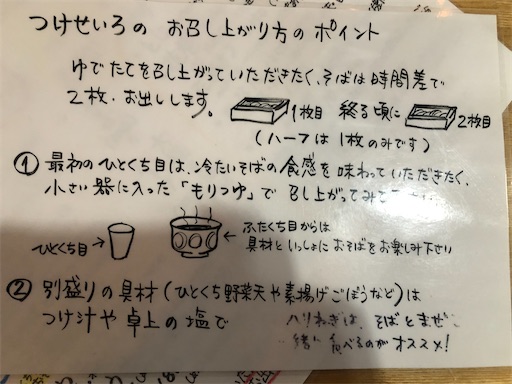 つけせいろの お召し上がり方の ポイント
ゆでたてを召し上がっていただきたく、そばは時間差で
2枚、お出しします。
1枚目 終る頃に 2枚目
(ハーフは1枚のみです)
① 最初のひとくち目は、冷たいそばの食感を味わっていただきたく、
小さい器に入った「もりつゆ」で召し上がってみ
ひとくち目→
←ふたくち目からは
具材といっしょにおそばをお楽しみ下さい
② 別盛りの具材(ひとくち野菜天や素揚げごぼうなど)は
つけ汁や卓上の塩で
ハリねぎは、そばとまぜ
一緒に食べるのがオススメ!